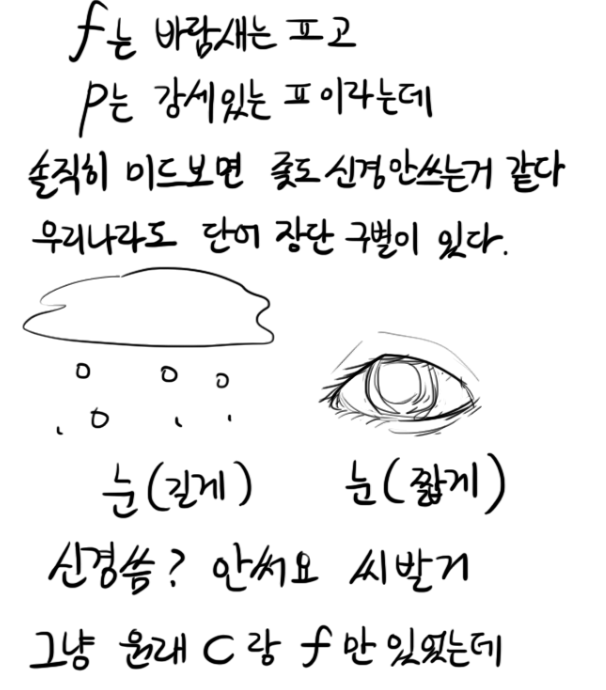 f는 바람새는 프고
p는 강세있는 프이라는데
솔직히 미드보면 좆도 신경안쓰는거 같다
우리나라도 단어 장단 구별이 있다.
눈(길게) 눈(짧게)
신경씀? 안써요 씨발거
그냥 원래 C랑 f만 있었는데